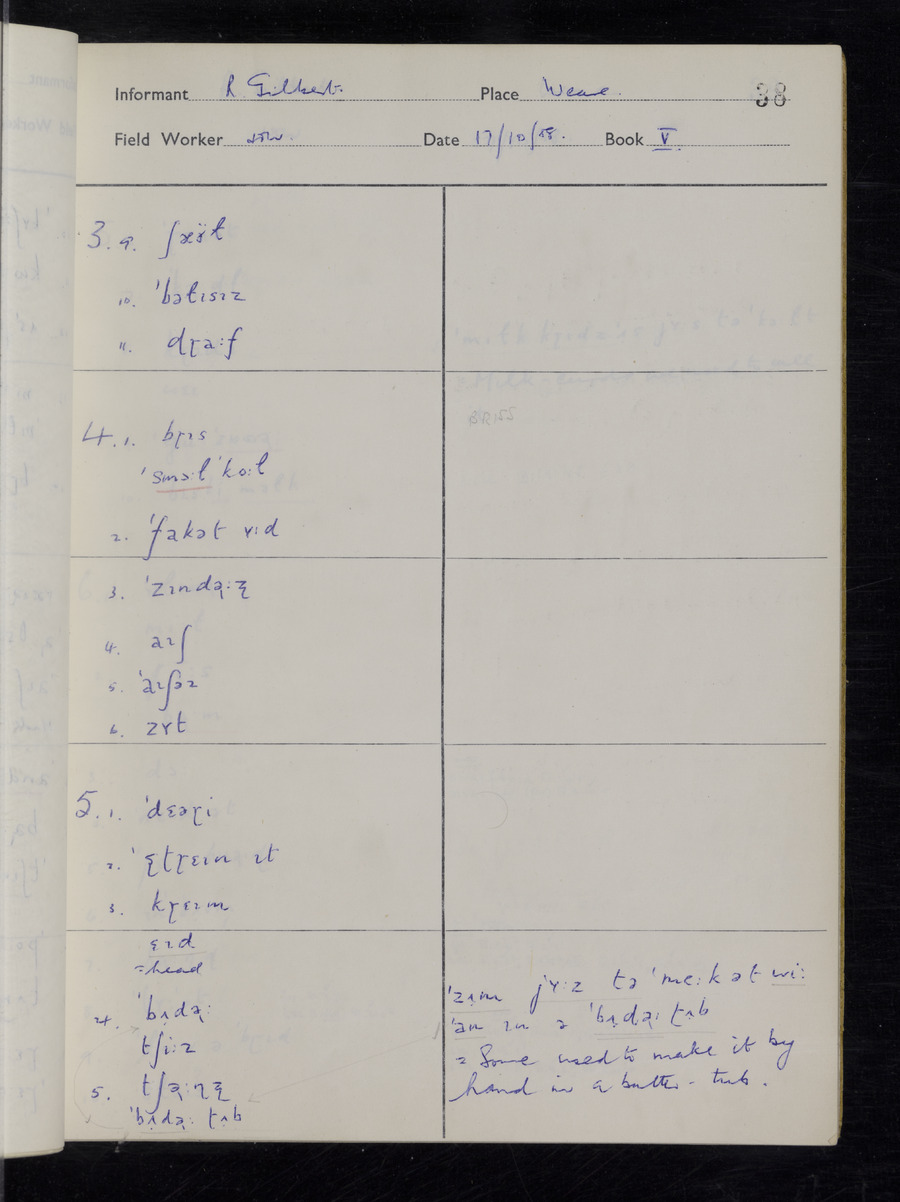 Informant R. Gilbert. Place Weare. 38
Field Worker Date 17/10/58. Book V
3. 9. ʃɛɪ̈t
10. ˈbətɪsɪz
11. dɽaːf
4. 1. bɽɪs
ˈsmɔːl ˈkoːl
2. ˈfakət ʏːd
3. ˈzɪndə̢ːɀ̢
4. aɪʃ
5. ˈaɪʃəz
6. zʏt
5. 1. ˈdɛəɽi
2. ˈʂtɽɛɪn ɪt
3. kɽɛɪm
ɛɪd
= head
4. ˈbʌ̣də̢ː
tʃiːz
5. tʃə̢ːɳɀ̢
ˈbʌ̣də̢ː tʌ̣b
ˈzʌ̣m jʏːz tə ˈmeːk ət wiː
ˈan ɪn ə ˈbʌ̣də̢ː tʌ̣b
= Some used to make it by
hand in a butter-tub.